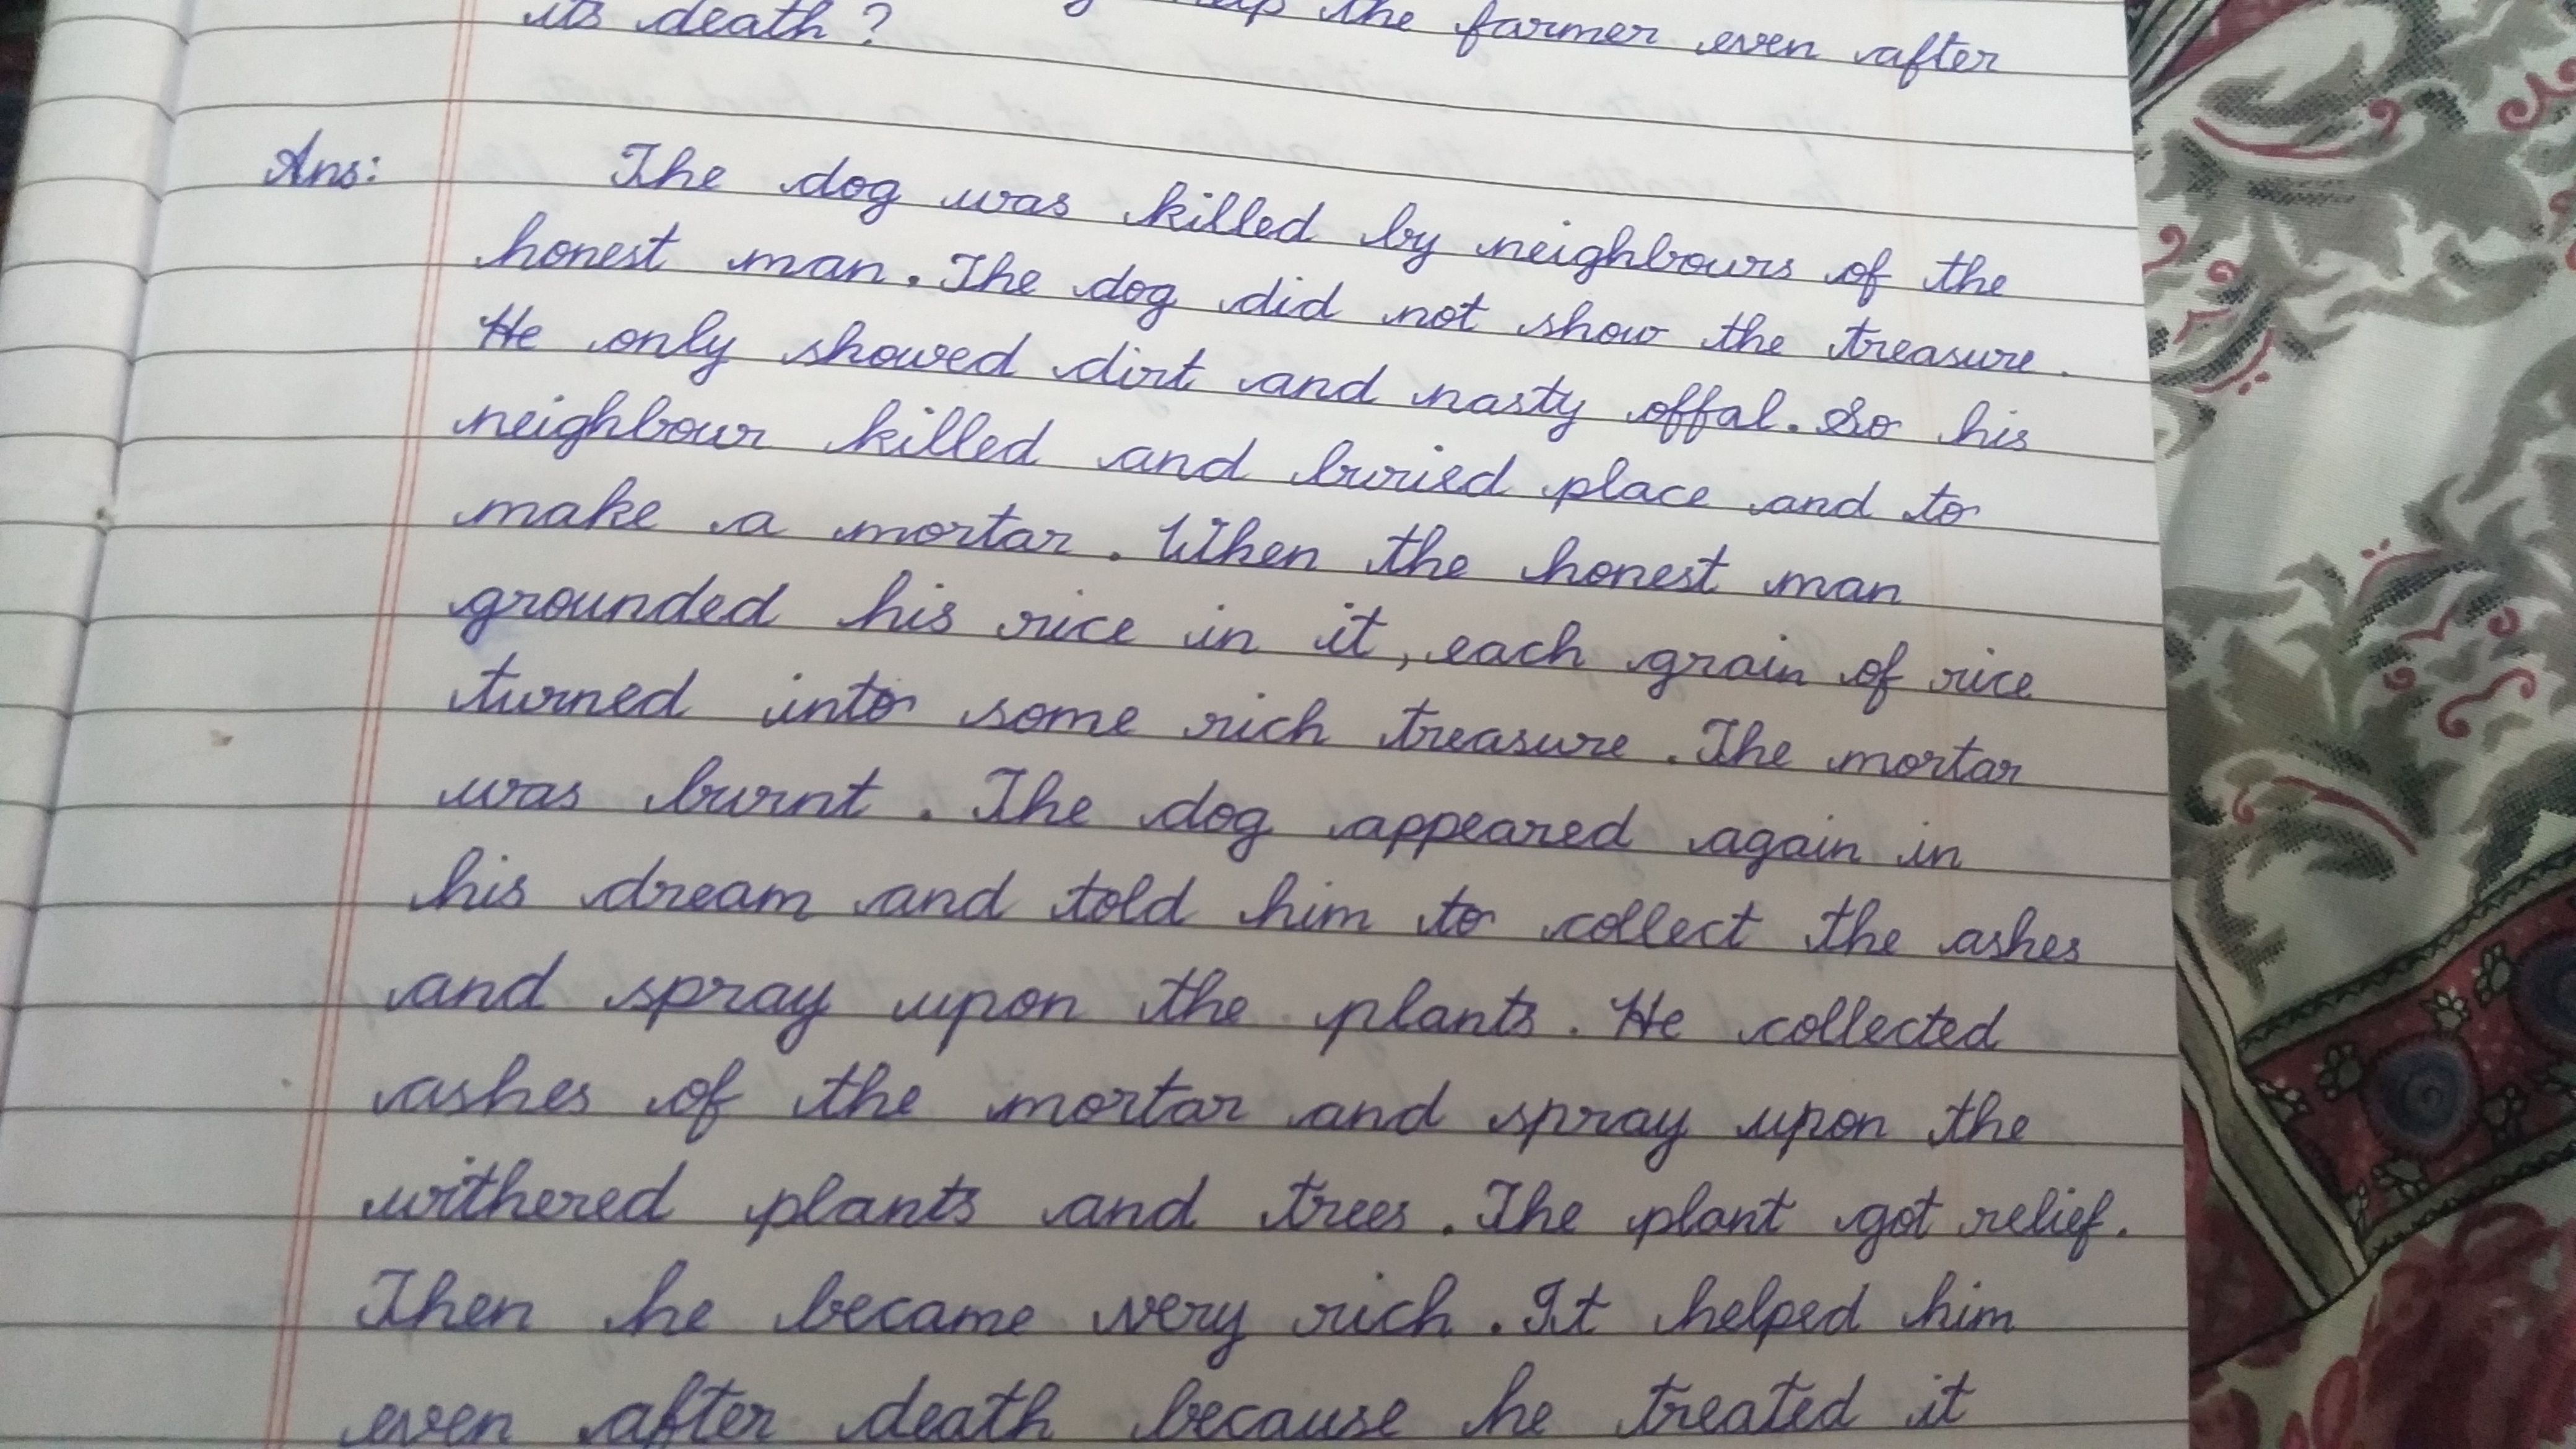 its death? help the farmer even after
Ans: The dog was killed by neighbours of the
honest man. The dog did not show the treasure.
He only showed dirt and nasty offal. So his
neighbour killed and buried place and to
make a mortar. When the honest man
grounded his rice in it, each grain of rice
turned into some rich treasure. The mortar
was burnt. The dog appeared again in
his dream and told him to collect the ashes
and spray upon the plants. He collected
ashes of the mortar and spray upon the
withered plants and trees. The plant got relief.
Then he became very rich. It helped him
even after death because he treated it